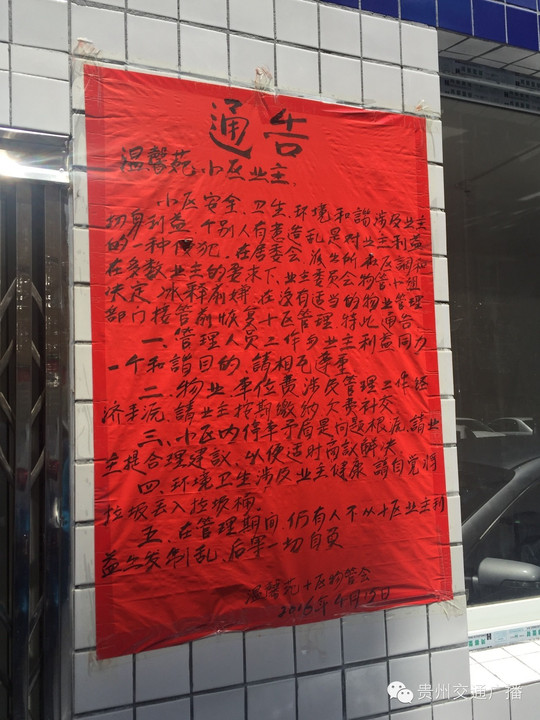 通告
温馨苑小区业主.
小区安全、卫生、环境和諧涉及业主
切身利益.个别人有意造乱是对业主利益
的一种侵犯.在居委会、派出所極反調和
在多数业主的要求下、业主委员会物管小组
决定冰释前嫌.在没有适当的物业管理
部门接管前恢复小区管理.特此通告
一、管理人员工作与业主利益同力
一个和諧目的,請相互尊重
二、物业、车位费涉及管理工作经
济来源、請业主按期缴纳、欠费补交
三、小区内停车矛盾是问题根底、請业
主提合理建議、以便适时商議解决
四、环境卫生涉及业主健康、請自觉将
垃圾丢入垃圾桶、
五、在管理期间、仍有人不从小区业主利
益出发制乱、后果一切自负
温馨苑小区物管会
4月15日
贵州交通广播